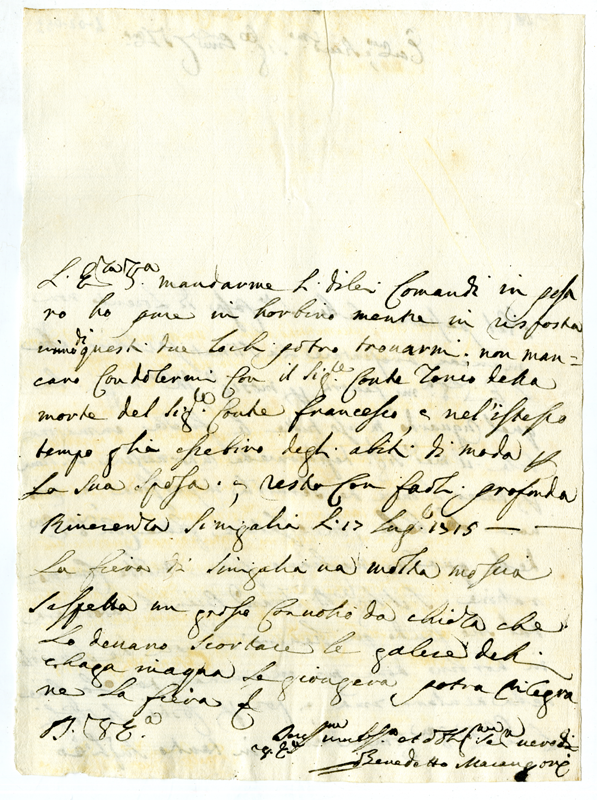 L. E. V. mandarme li di lei Comandi in pesa
ro ho pure in horbino mentre in risposta
uno di questi due lochi potro trouarmi. non man=
caro Condolermi Con il Sig.re Conte Tonio della
morte del Sig.re Conte francesco, e nel'istesso
tempo gli essebiro degli abiti di moda p
La Sua Sposa. e resto Con farli profonda
Riuerenza Sinigalia li 17 Lug.o 1715
La fiera di Sinigalia ua molto moscia
Saspetta un grosso Conuoio da chiota che
Lo deuano scortare le galere deli
chaga magna se giongera potra rilegra
re La fiera
D. V. E.
Benedetto Marangoni